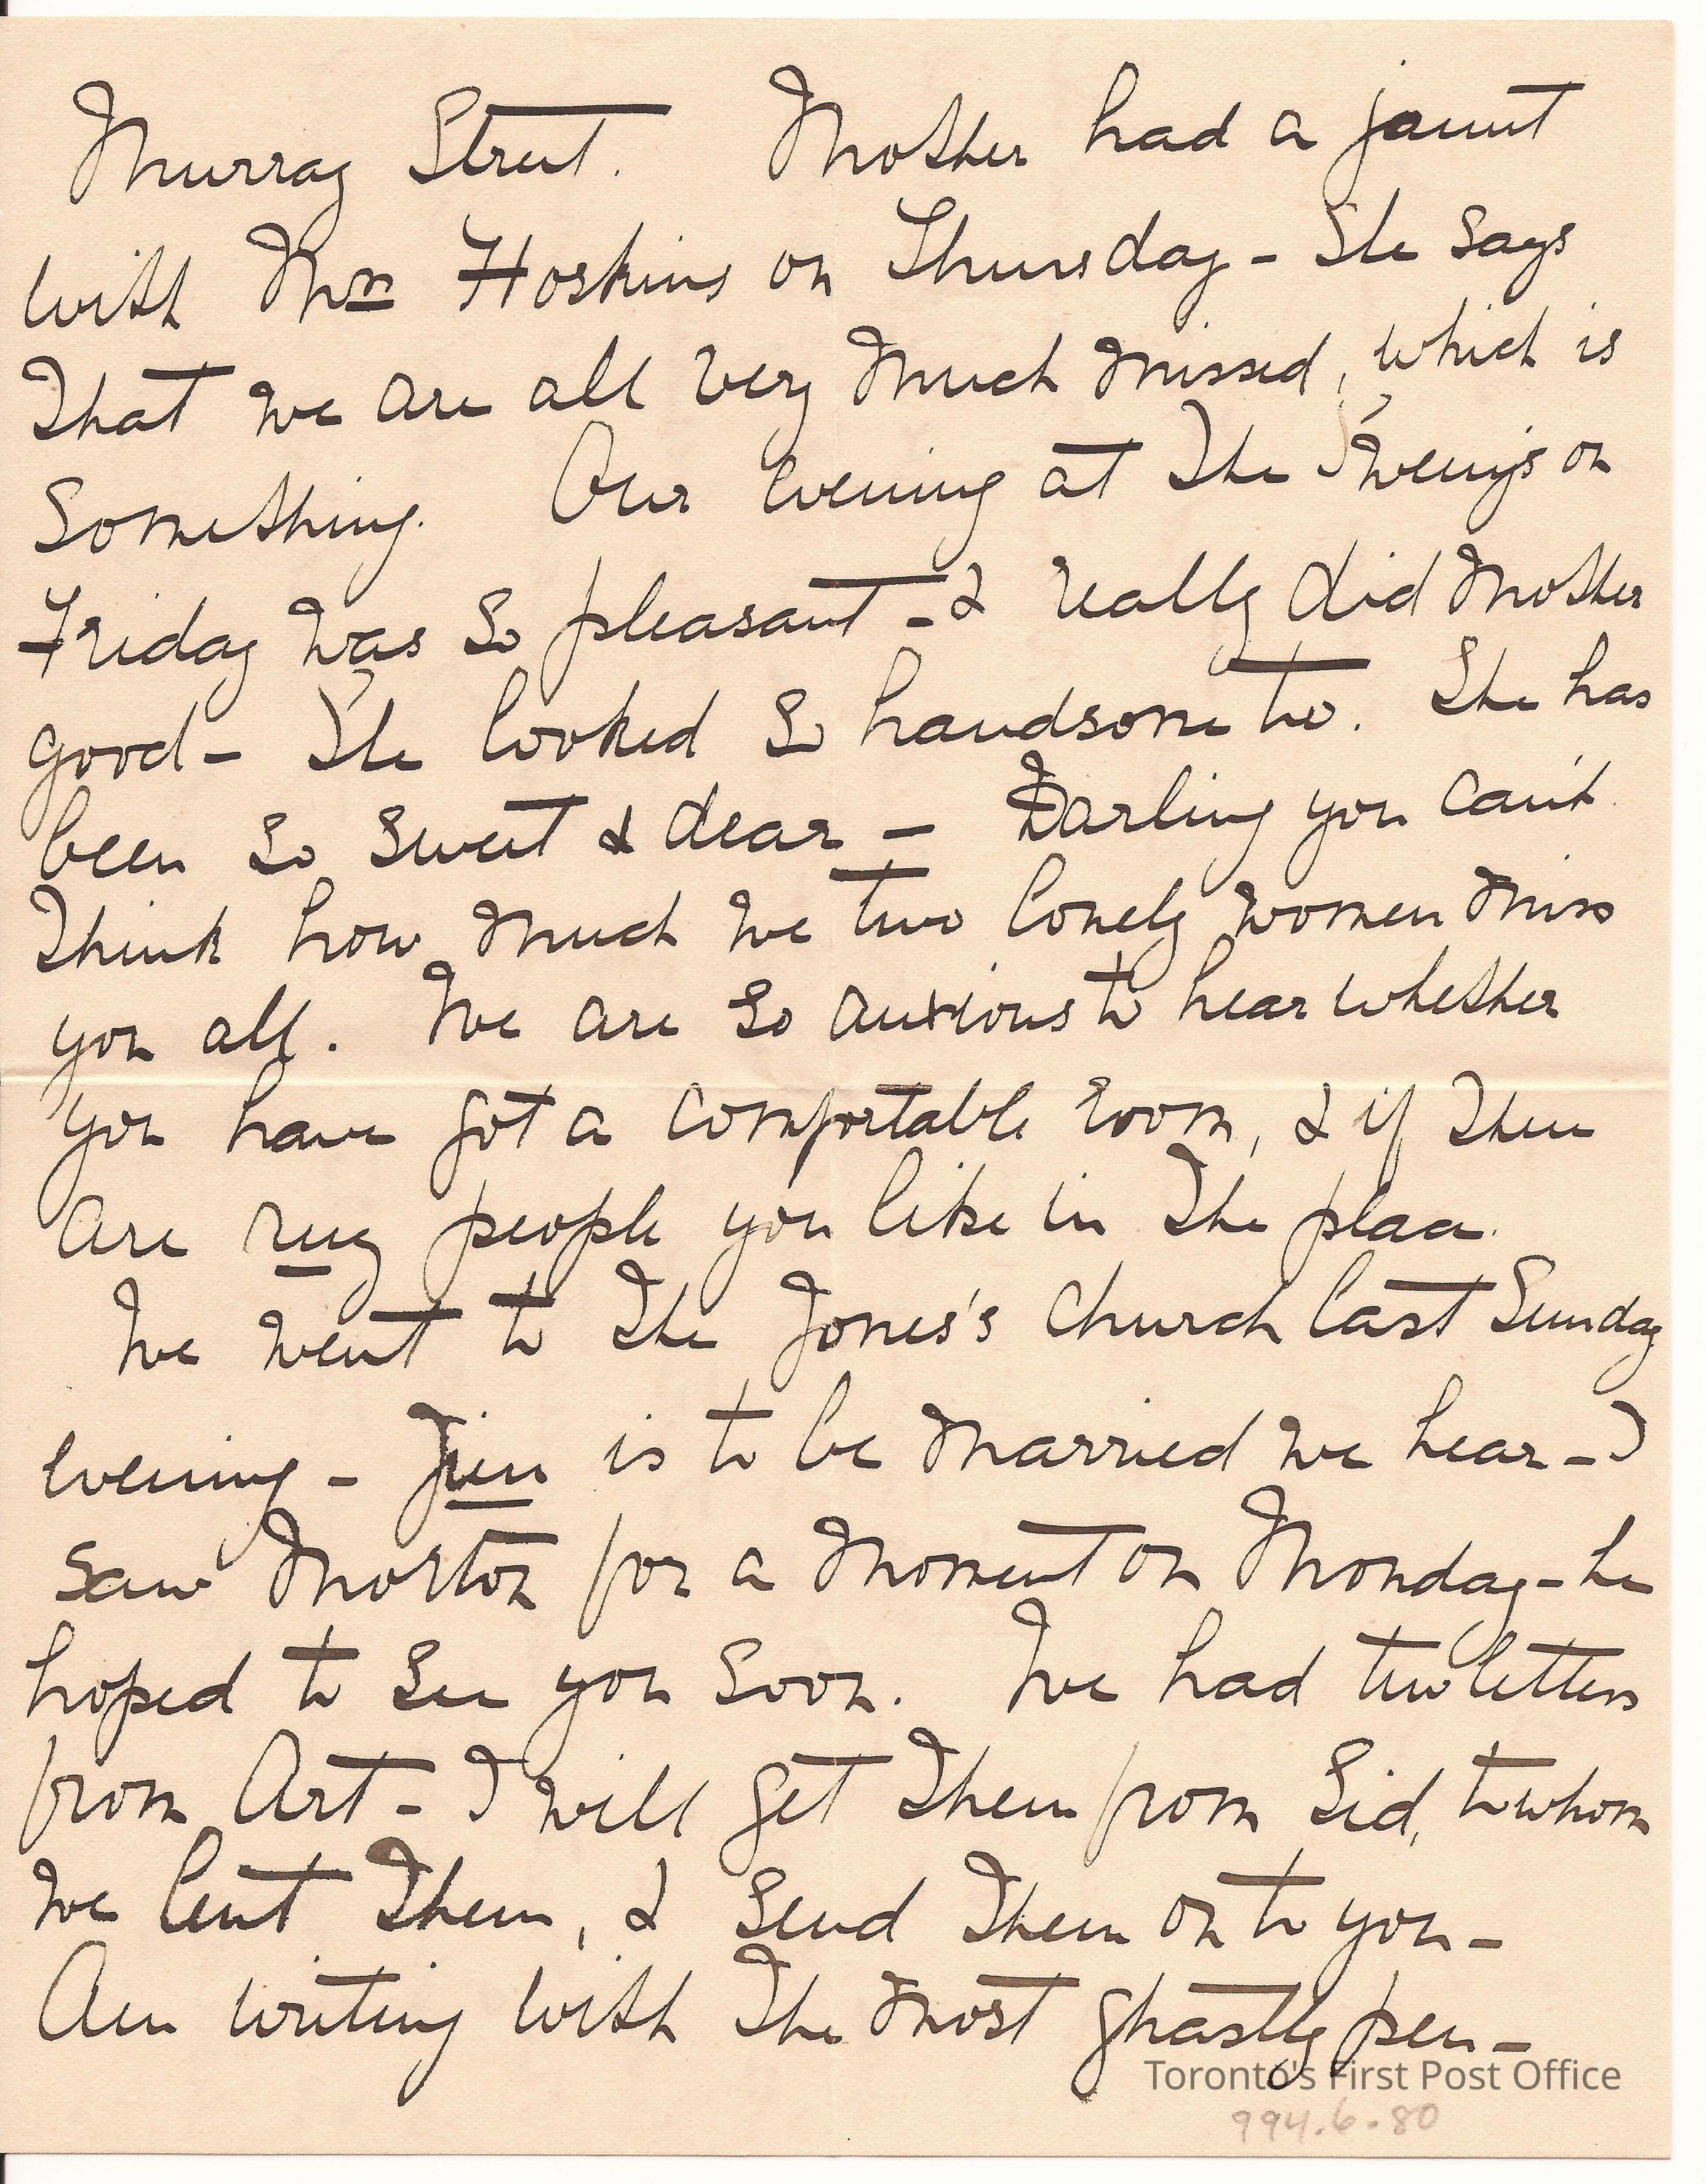 Murray Street. Mother had a jaunt
with Mrs Hoskins on Thursday - She says
that we are all very much missed, which is
something. Our evening at the on
Friday was so pleasant - & really did Mother
good - She looked so handsome too. She has
been so sweet & dear - Darling you can't
think how much we two lonely women miss
you all. We are so anxious to hear whether
you have got a comfortable room, & if there
are any people you like in the place.
We went to the Jones's Church last Sunday
evening - Jim is to be married we hear - I
saw Morton for a moment on Monday - he
hoped to see you soon. We had two letters
from Art - I will get them from Sid, to whom
we lent them, & send them on to you -
Am writing with the most ghastly pen -
Toronto's First Post Office
994.6.80